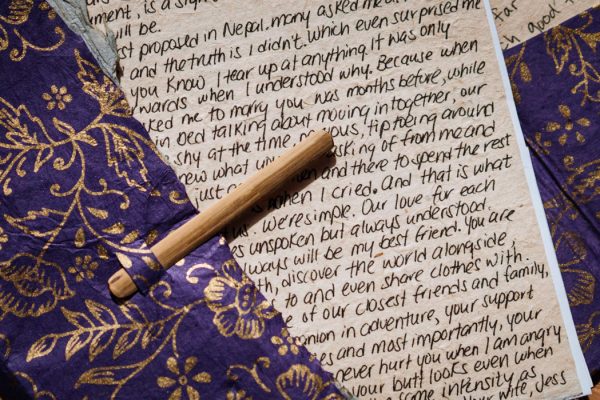 ument, is a sig
will be.
st proposed in Nepal. many asked me
and the truth is I didn't. Which even surprised me
you know I tear up at anything. It was only
wards when I understood why. Because when
ked me to marry you was months before, while
in bed talking about moving in together, our
shy at the time. ous, tip toeing around
new what asking of from me and
just and there to spend the rest
when I cried. And that is what
us. We're simple. Our love for each
as unspoken but always understood.
ways will be my best friend. You are
th, discover the world alongside,
to and even share clothes with.
of our closest friends and family,
anion in adventure, your support
es and most importantly, your
never hurt you when I am angry
your butt looks even when
the same intensity as
Your wife, Jess
far
good